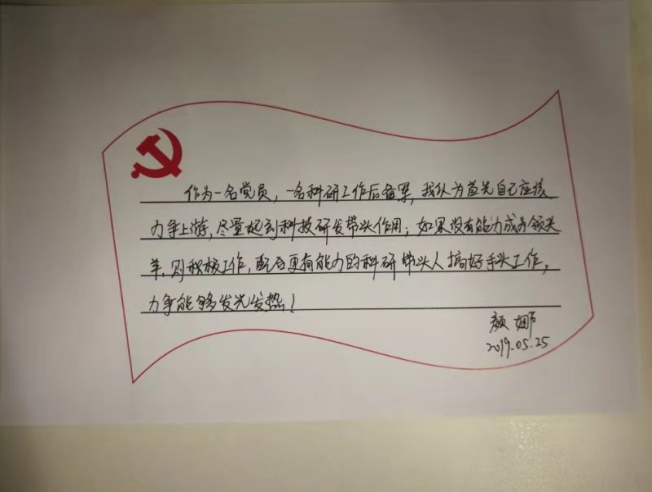 作为一名党员，一名科研工作后备军，我认为首先自己应该
力争上游，尽量起到科技研发带头作用；如果没有能力成为领头
羊，则积极工作，配合更有能力的科研带头人搞好手头工作，
力争能够发光发热！
颜娜
2019.05.25